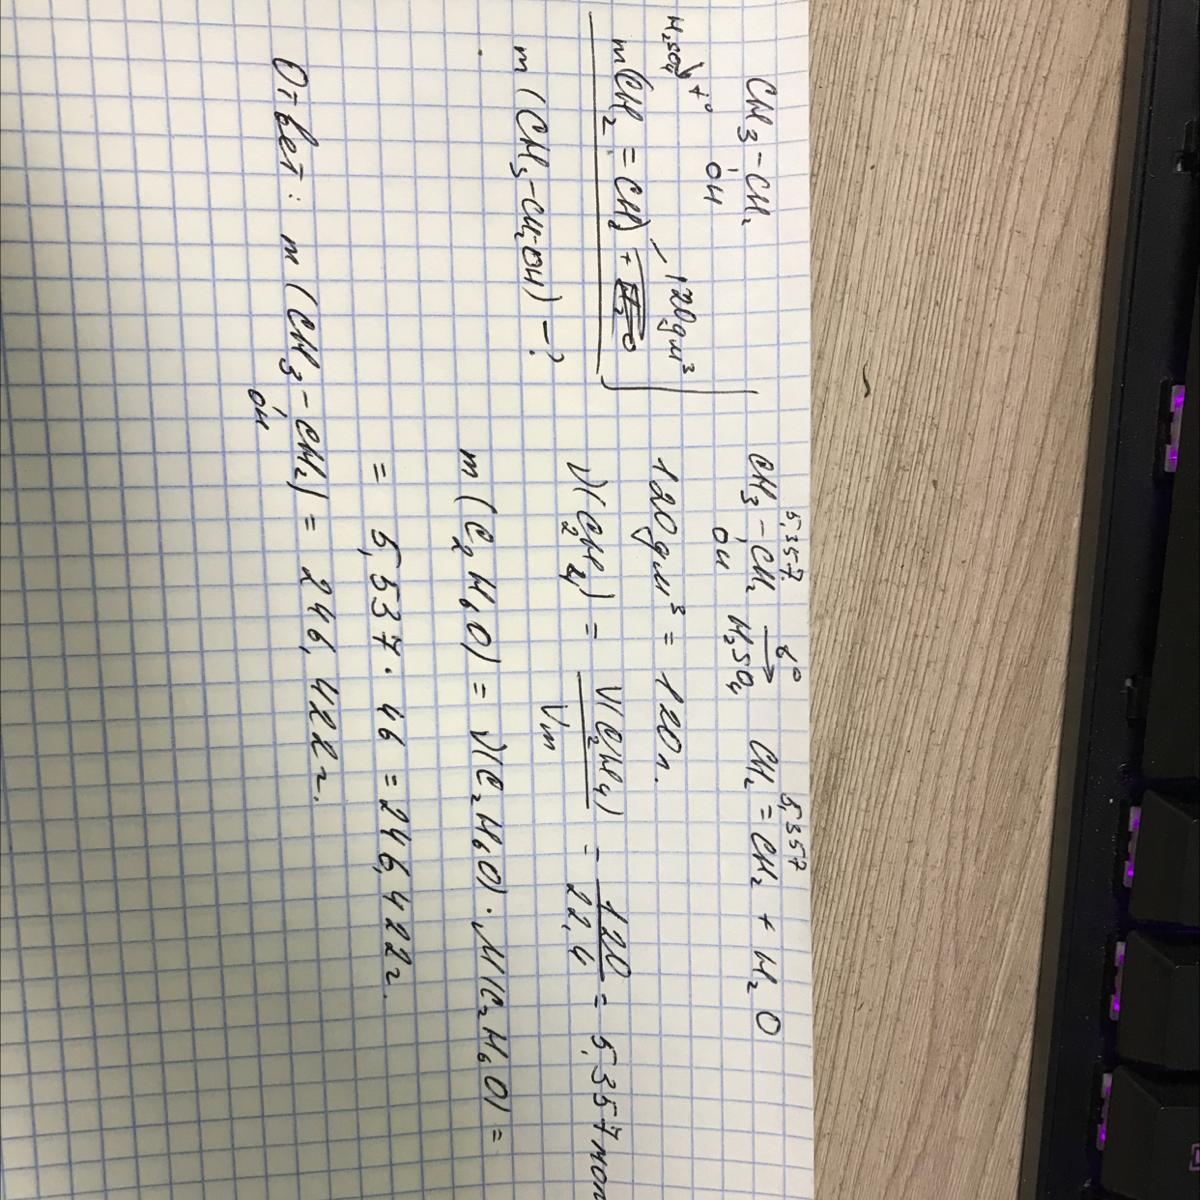 CH3 - CH2
OH
H2SO4, t°
m(CH2 = CH2) + H2O
120 дм³
m (CH3-CH2OH) - ?
5,357 5,357
CH3 - CH2 t° → CH2 = CH2 + H2O
OH H2SO4
120 дм³ = 120 л.
ν(C2H4) = V(C2H4) = 120 = 5,357 моль
Vm 22,4
m (C2H6O) = ν(C2H6O) · M(C2H6O) =
= 5,537 · 46 = 246,422 г.
Ответ: m (CH3 - CH2) = 246,422 г.
OH